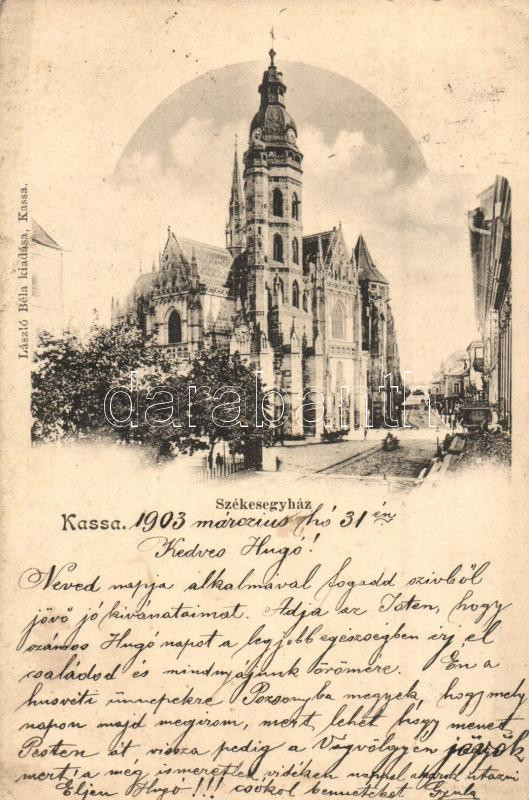 László Béla kiadása, Kassa.
darabanth
Székesegyház
Kassa. 1903 márczius hó 31 én
Kedves Hugó!
Neved napja alkalmával fogadd szivből
jövő jó kivánataimat. Adja az Isten, hogy
számos Hugó napot a legjobb egészségben érj el
családod és mindnyájunk örömére. Én a
husvéti ünnepekre Pozsonyba megyek, hogy mely
napon majd megirom, mert lehet hogy menet
Pesten át vissza pedig a Vágvölgyén jövök
mert a még ismeretlen vidéken nappal akarok utazni
Éljen Hugó!!! csókol benneteket Gyula